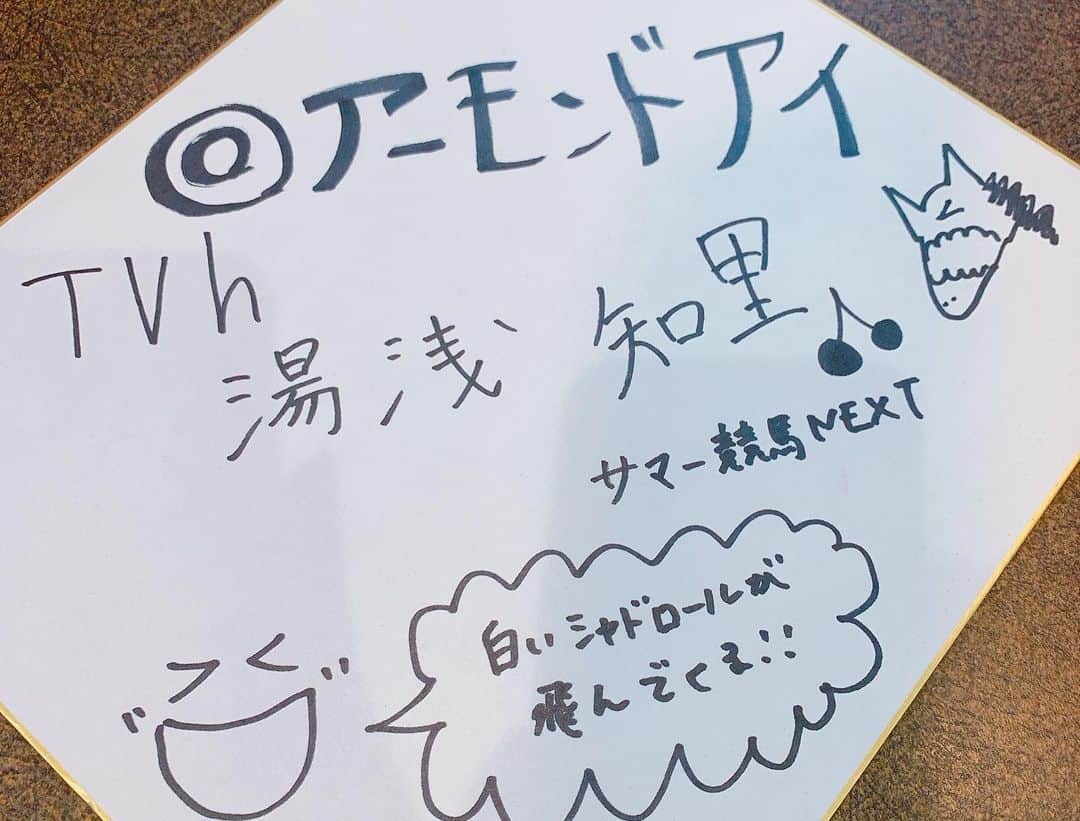 ◎アーモンドアイ
TVh
湯浅 知里♪
サマー競馬NEXT
白いシャドロールが
飛んでくる!!